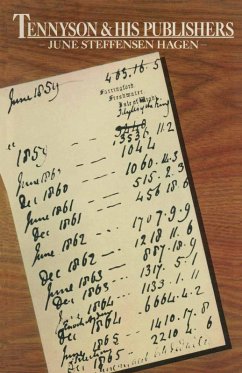 TENNYSON & HIS PUBLISHERS
JUNE STEFFENSEN HAGEN
June 1859
403.16.5
Farringford
Freshwater
Isle of Wight
Idylls of the King
"1859
11.2
1044
June 1860
1060.
Dec 1860
515.2.3
June 1861
456.18.6
Dec 1861
1707.9.9
June 1862
1218.11.6
Dec 1862
887.18.9
June 1863
1317.5.1
Dec 1863
1133.1.11
June 1864
6664.4.2
Enoch Arden
Dec 1864
1410.17.8
June 1865
2210.4.6
Dec 1865